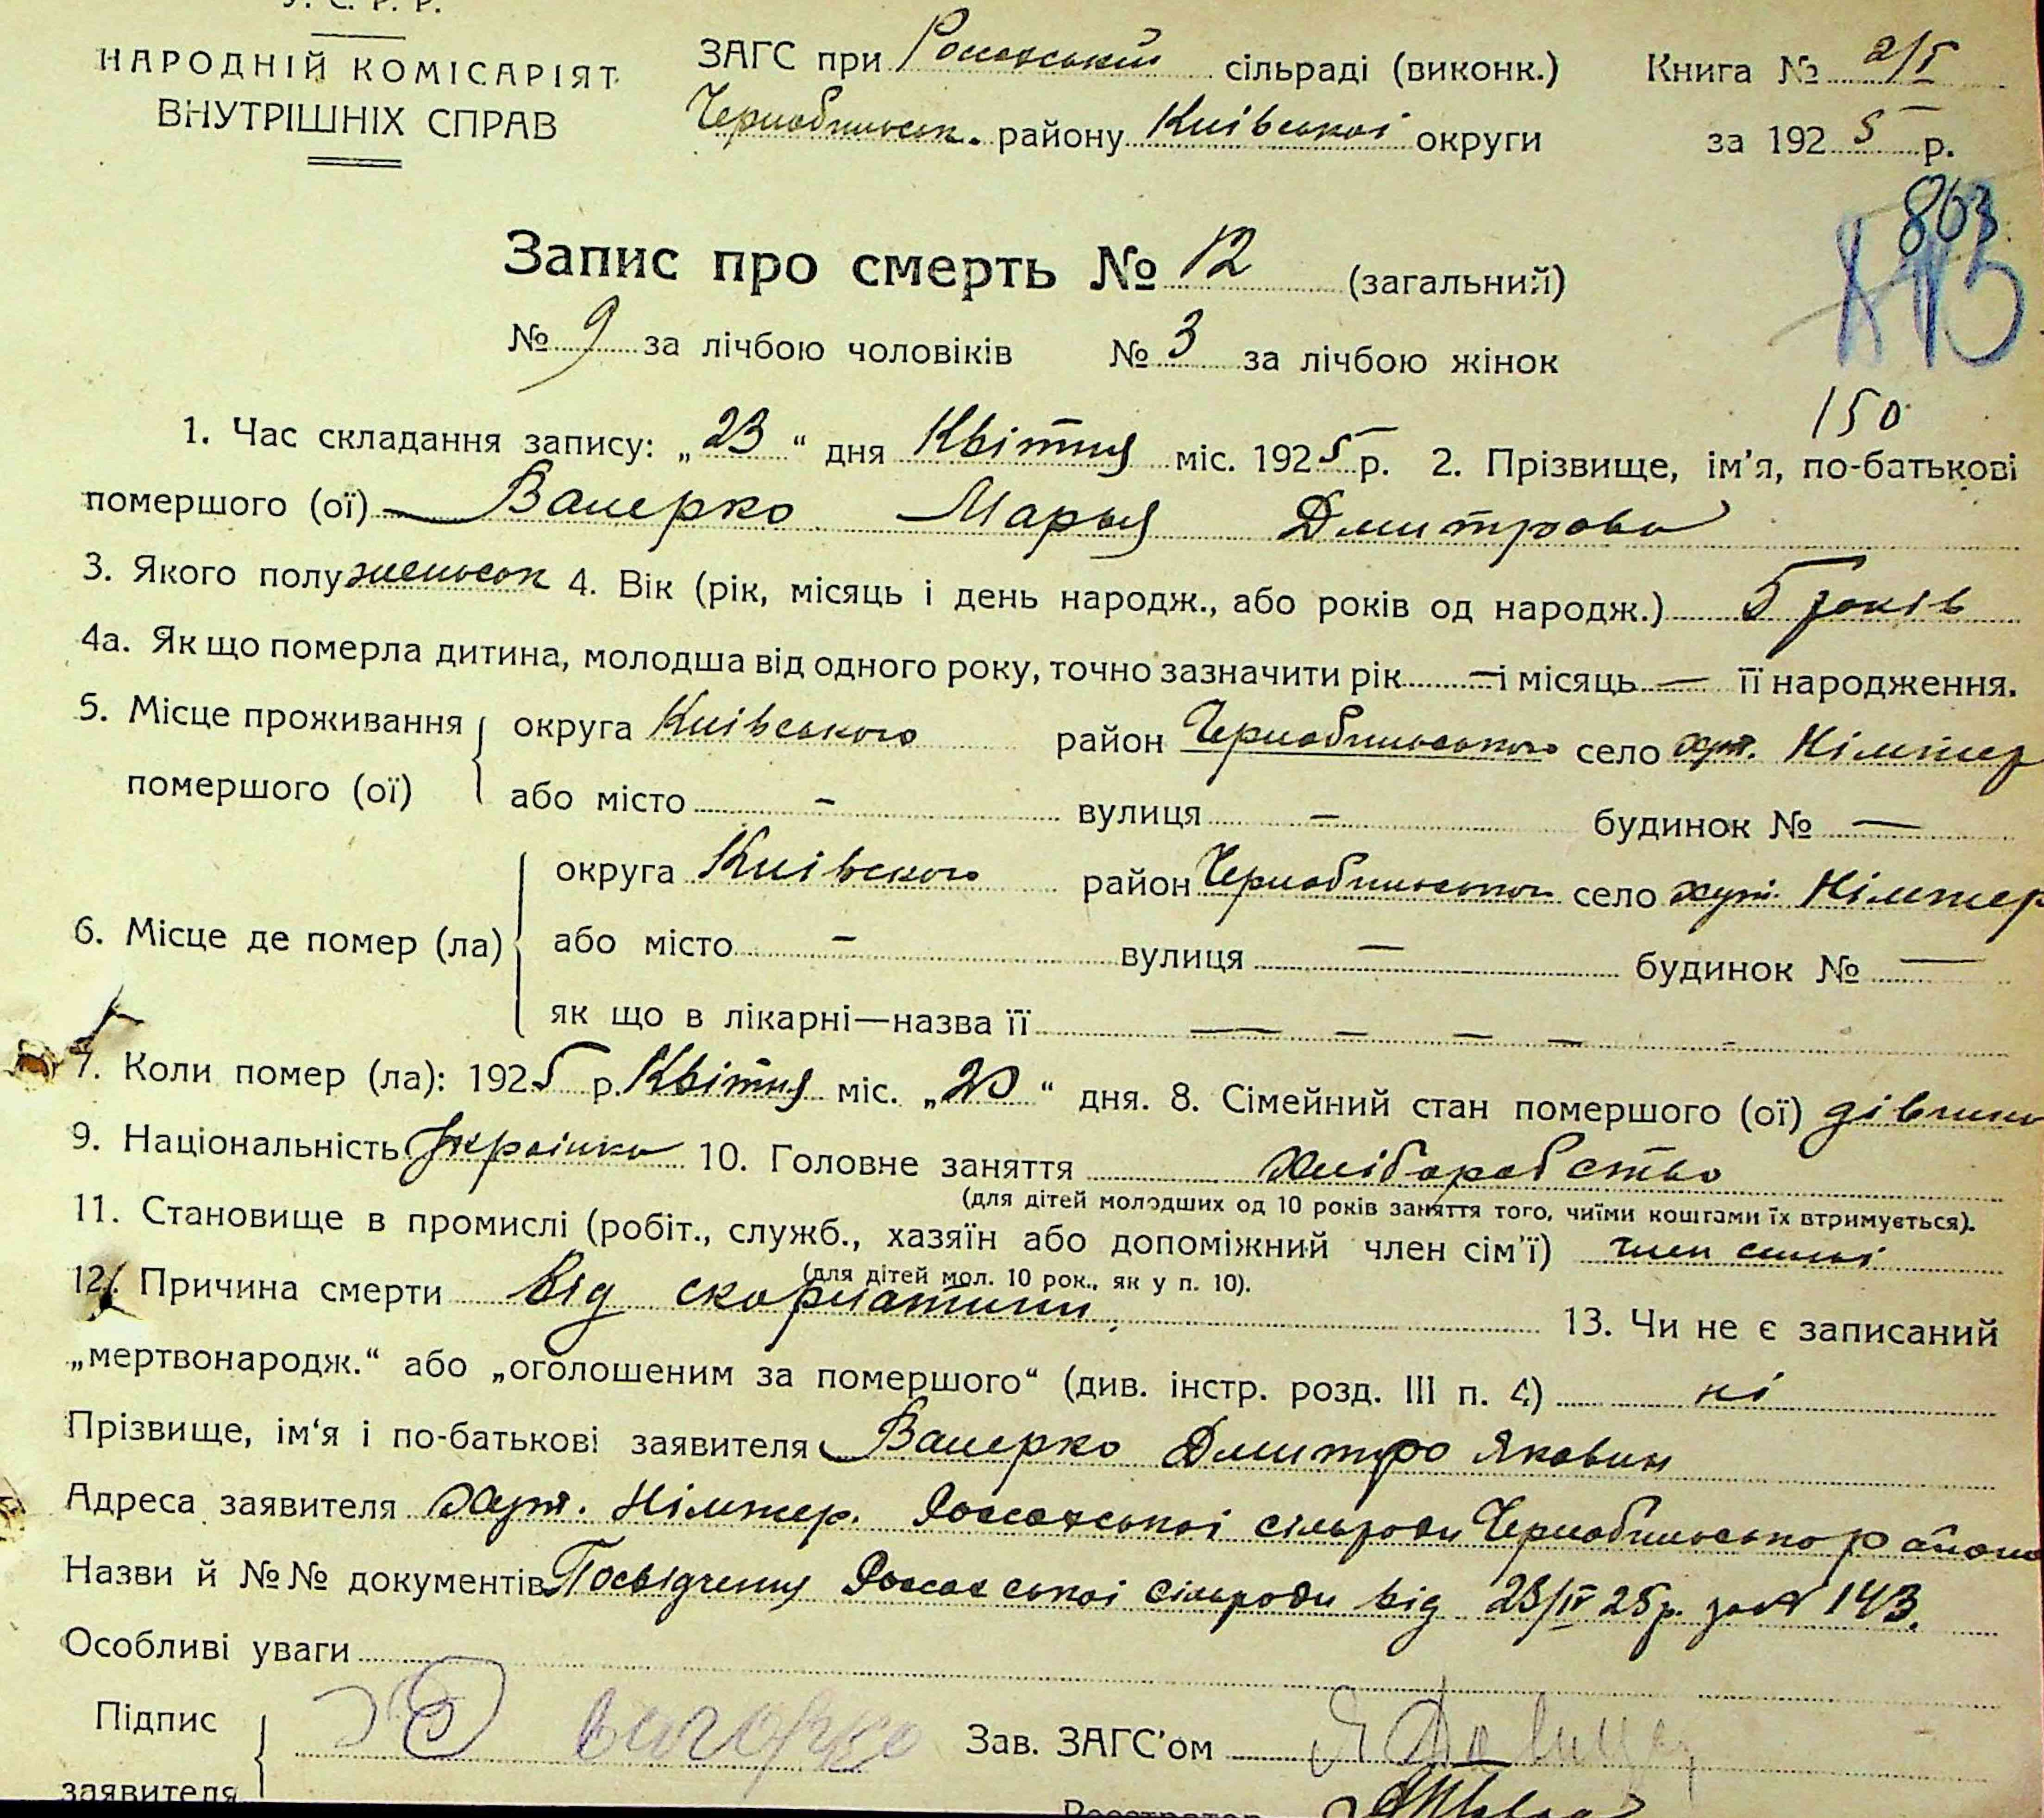 У. С. Р. Р.
НАРОДНІЙ КОМІСАРІЯТ
ВНУТРІШНІХ СПРАВ
ЗАГС при сільраді (виконк.)
Чорнобильськ. району Київської округи
Книга № 2/I
за 1925 р.
863
Запис про смерть № 12 (загальний)
№ 9 за лічбою чоловіків № 3 за лічбою жінок
150
1. Час складання запису: „23“ дня Квітня міс. 1925 р. 2. Прізвище, ім'я, по-батькові
помершого (ої) Валерко Марья Дмитрова
3. Якого полу женськ 4. Вік (рік, місяць і день народж., або років од народж.) 5 років
4а. Як що померла дитина, молодша від одного року, точно зазначити рік — і місяць — її народження.
5. Місце проживання округа Київського район Чорнобильського село хут. Кілтер
помершого (ої) або місто - вулиця - будинок № —
округа Київского район село хут. Кілтер
6. Місце де помер (ла) або місто - вулиця — будинок № —
як що в лікарні—назва її — — — —
7. Коли помер (ла): 1925 р. Квітня міс. „20“ дня. 8. Сімейний стан помершого (ої)
9. Національність Українка 10. Головне заняття Хліборобство
(для дітей молодших од 10 років заняття того, чиїми коштами їх втримується).
11. Становище в промислі (робіт., служб., хазяїн або допоміжний член сім'ї) член сімі
(для дітей мол. 10 рок., як у п. 10).
12. Причина смерти Від скорлатини 13. Чи не є записаний
„мертвонародж.“ або „оголошеним за помершого“ (див. інстр. розд. III п. 4) ні
Прізвище, ім'я і по-батькові заявителя Валерко Дмитро Якович
Адреса заявителя Хут. Кілтер. сільради
Назви й №№ документів Посвідчення сільради від 23/IV 25 р. за № 143.
Особливі уваги
Підпис
заявителя
Зав. ЗАГС'ом
Реєстратор